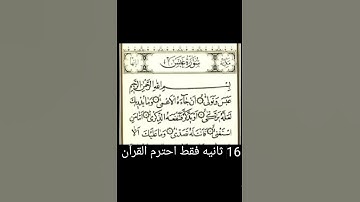 سورة عبس
بسم الله الرحمن الرحيم
عبس وتولى أن جاءه الأعمى وما يدريك
لعله يزكى أو يذكر فتنفعه الذكرى أما من
استغنى فأنت له تصدى وما عليك ألا
16 ثانيه فقط احترم القرآن